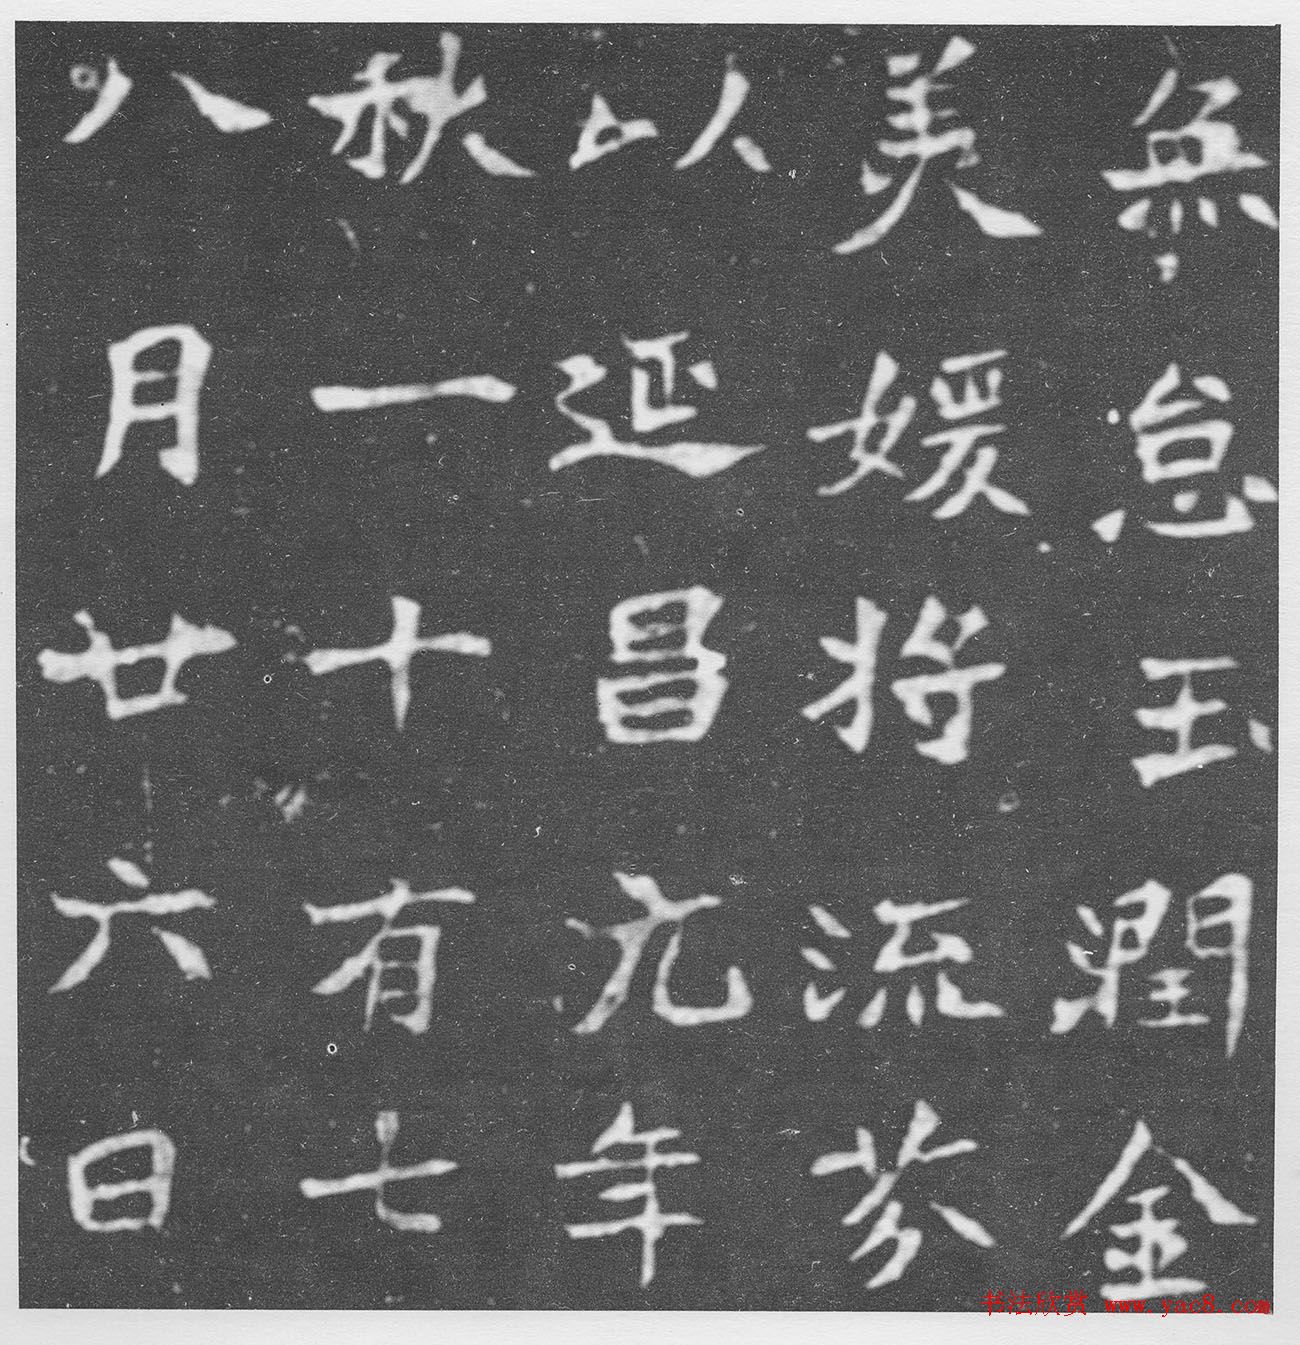 無怠玉潤金
美媛將流芬
以延昌元年
秋一十有七
八月廿六日
书法欣赏 www.yac8.com